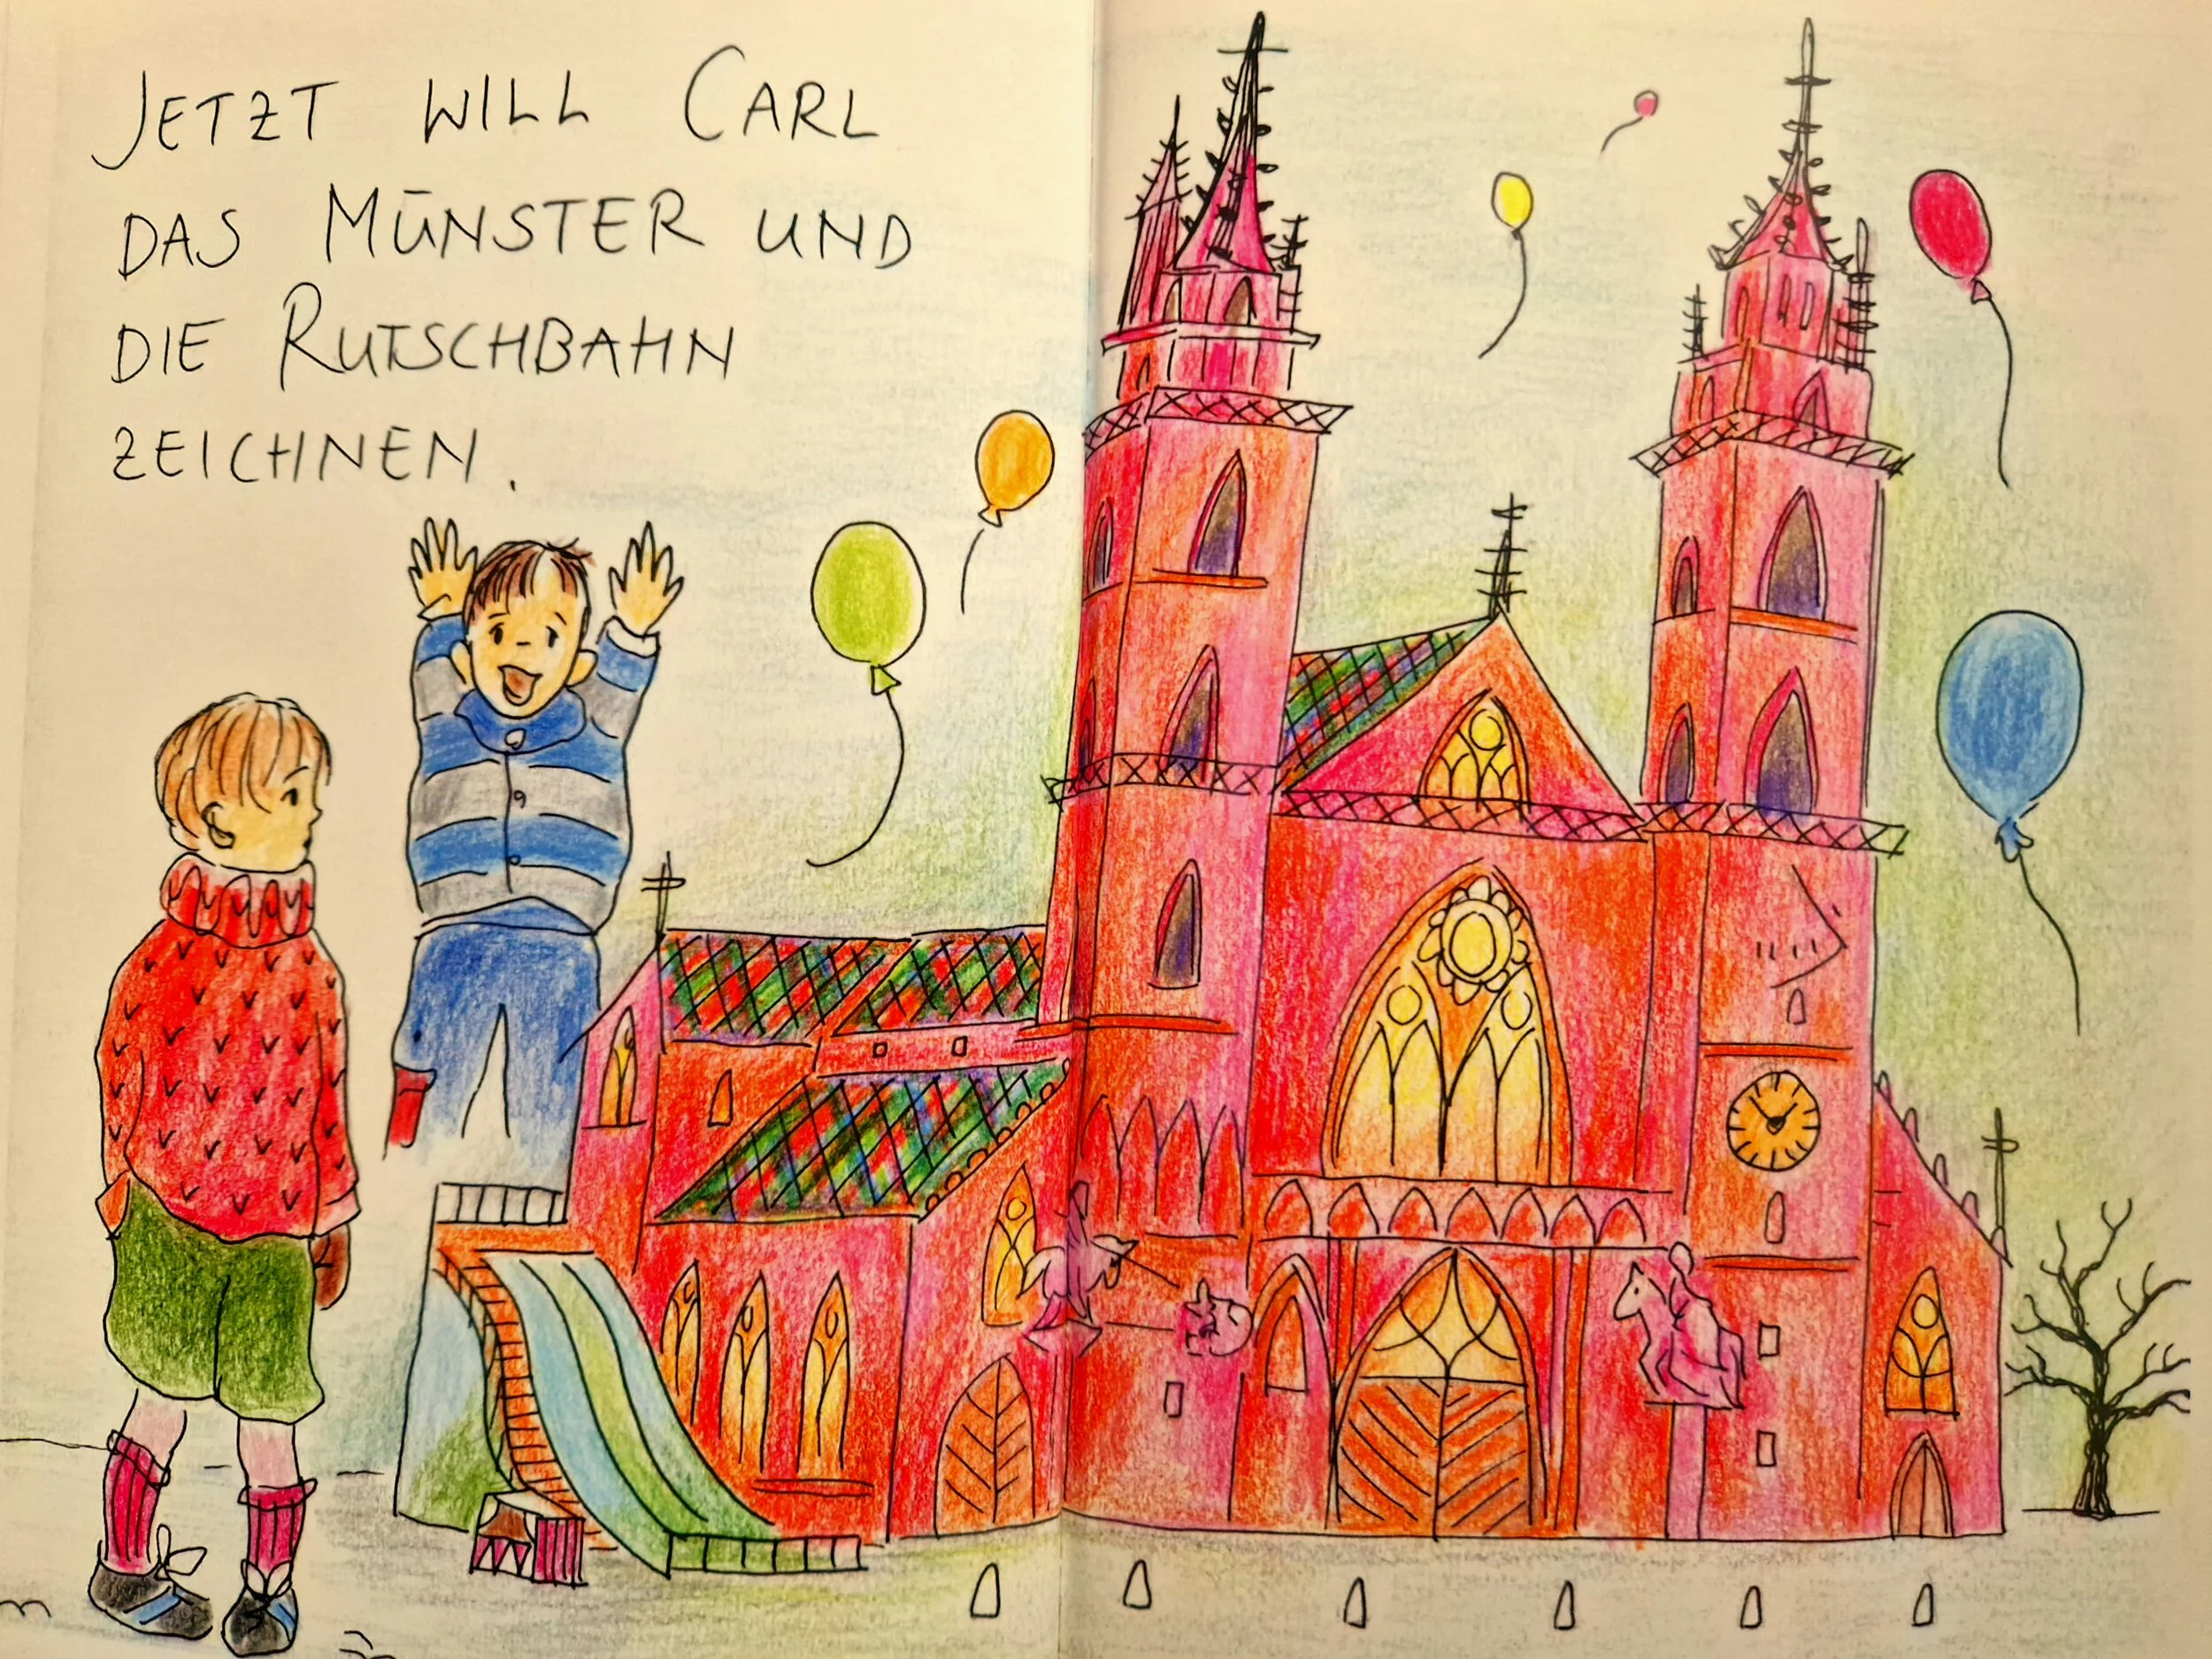 JETZT WILL CARL
DAS MÜNSTER UND
DIE RUTSCHBAHN
ZEICHNEN.